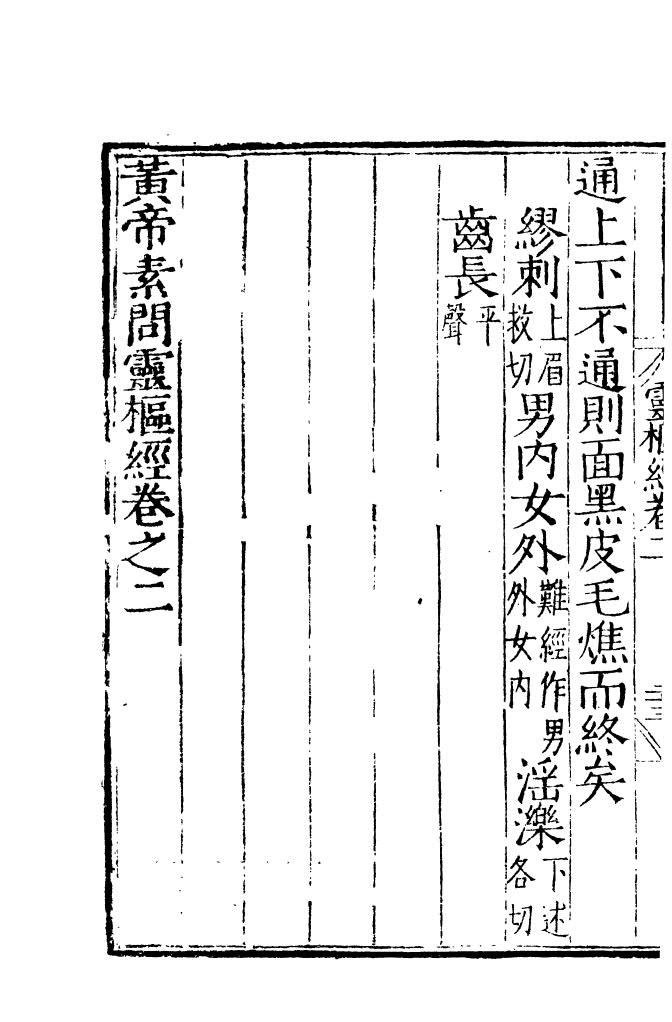 靈樞經卷二
通上下不通則面黑皮毛燋而終矣
繆刺上眉救切男内女外難經作男外女内滛濼下述各切
齒長平聲
黃帝素問靈樞經卷之二